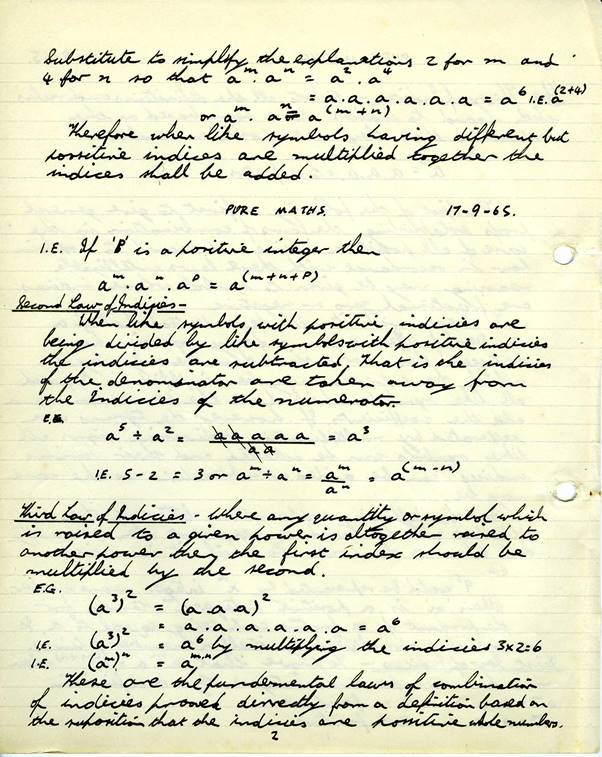 Substitute to simplify the explanations 2 for m and
4 for n so that aᵐ. aⁿ = a². a⁴
= a. a. a. a. a. a = a⁶ I.E. a⁽²⁺⁴⁾
or aᵐ. aⁿ = a⁽ᵐ⁺ⁿ⁾
Therefore when like symbols having different but
positive indices are multiplied together the
indices shall be added.
PURE MATHS. 17-9-65.
I.E. If 'P' is a positive integer then
aᵐ. aⁿ. aᵖ = a⁽ᵐ⁺ⁿ⁺ᵖ⁾
Second Law of Indicies -
When like symbols with positive indicies are
being divided by like symbols with positive indicies
the indicies are subtracted, that is the indicies
of the denominator are taken away from
the Indicies of the numerator.
E.G.
a⁵ ÷ a² = a a a a a / a a = a³
I.E. 5 - 2 = 3 or aᵐ ÷ aⁿ = aᵐ / aⁿ = a⁽ᵐ⁻ⁿ⁾
Third Law of Indicies - Where any quantity or symbol which
is raised to a given power is altogether raised to
another power then the first index should be
multiplied by the second.
E.G.
(a³)² = (a. a. a)²
= a. a. a. a. a. a = a⁶
I.E. (a³)² = a⁶ by multiplying the indicies 3x2=6
I.E. (aᵐ)ⁿ = aᵐ·ⁿ
These are the fundermental laws of combination
of indicies proved dirrectly from a definition based on
the suposition that the indicies are possitive whole numbers.
2